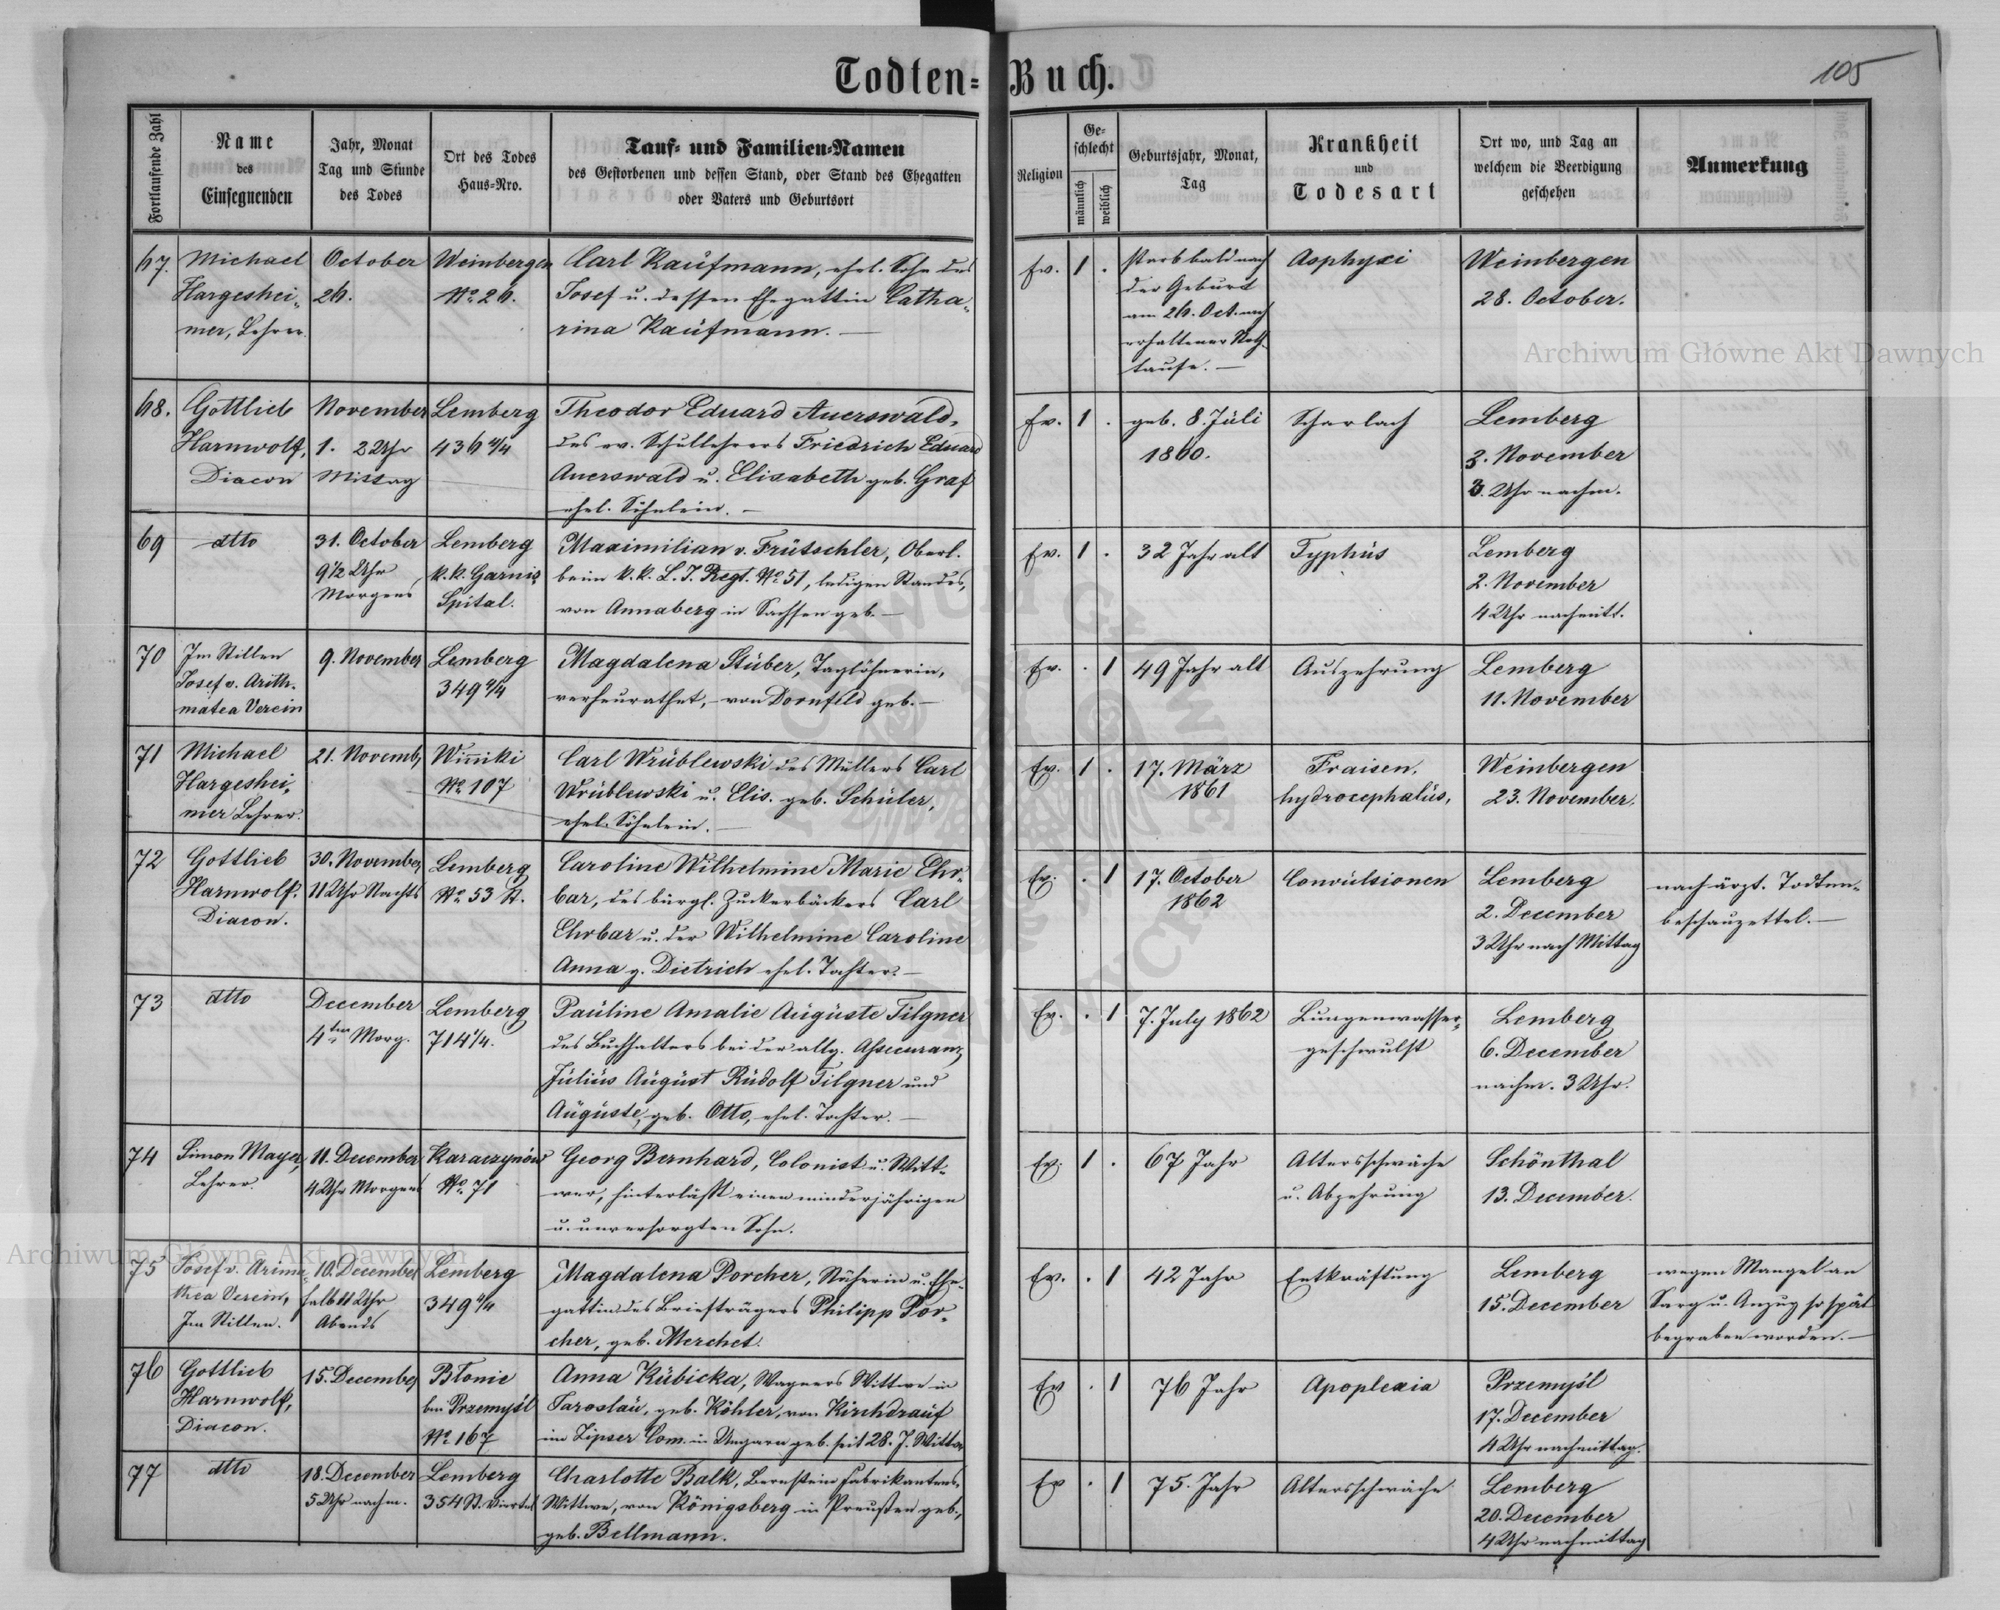 Todten-Buch.
105
Fortlaufende Zahl
Name
des
Einsegnenden
Jahr, Monat
Tag und Stunde
des Todes
Ort des Todes
Haus-Nro.
Tauf- und Familien-Namen
des Gestorbenen und dessen Stand, oder Stand des Ehegatten
oder Vaters und Geburtsort
Religion
Ge-
schlecht
männlich
weiblich
Geburtsjahr, Monat,
Tag
Krankheit
und
Todesart
Ort wo, und Tag an
welchem die Beerdigung
geschehen
Anmerkung
67.
Michael
Hargeshei-
mer, Lehrer.
October
26.
Weinbergen
No. 26.
Carl Kaufmann, ehel. Sohn des
Josef u. dessen Ehegattin Catha-
rina Kaufmann. —
Ev.
1
.
Starb bald nach
der Geburt
am 26. Oct. nach
erhaltener Noth-
taufe. —
Asphyxi
Weinbergen
28. October.
68.
Gottlieb
Harnwolf,
Diacon
November
1. 2 Uhr
Mittag
Lemberg
436 4/4
Theodor Eduard Auerswald,
des ev. Schullehrers Friedrich Eduard
Auerswald u. Elisabeth geb. Graf
ehel. Söhnlein. —
Ev.
1
.
geb. 8. Juli
1860.
Scharlach
Lemberg
3. November
3. Uhr nachm.
69
dtto
31. October
9 1/2 Uhr
Morgens
Lemberg
k.k. Garnis.
Spital.
Maximilian v. Frütschler, Oberl.
beim k.k. L. I. Regt. No. 51, ledigen Standes,
von Annaberg in Sachsen geb. —
Ev.
1
.
32 Jahr alt
Typhus
Lemberg
2. November
4 Uhr nachmitt.
70
Im Stillen
Josef v. Arith-
matea Verein
9. November
Lemberg
349 4/4
Magdalena Stüber, Taglöhnerin,
verheurathet, von Dornfeld geb. —
Ev.
.
1
49 Jahr alt
Auszehrung
Lemberg
11. November
71
Michael
Hargeshei-
mer Lehrer.
21. Novemb.
Winniki
No. 107
Carl Wrüblewski des Müllers Carl
Wrüblewski u. Elis. geb. Schüler,
ehel. Söhnlein. —
Ev.
1
.
17. März
1861
Fraisen.
hydrocephalus,
Weinbergen
23. November.
72
Gottlieb
Harnwolf.
Diacon.
30. November
11 Uhr Nachts
Lemberg
No. 53 St.
Caroline Wilhelmine Marie Ehr-
bar, des bürgl. Zuckerbäckers Carl
Ehrbar u. der Wilhelmine Caroline
Anna g. Dietrich ehel. Tochter. —
Ev.
.
1
17. October
1862
Convulsionen
Lemberg
2. December
3 Uhr nach Mittag
nach ärzt. Todten-
beschauzettel. —
73
dtto
December
4ten Morg.
Lemberg
714 1/4.
Pauline Amalie Auguste Tilgner
des Buchhalters bei der allg. Assecuranz
Julius August Rudolf Tilgner und
Auguste, geb. Otto, ehel. Tochter. —
Ev.
.
1
7. July 1862
Lungenwasser-
geschwulst
Lemberg
6. December
nachm. 3 Uhr.
74
Simon Mayer,
Lehrer.
11. December
4 Uhr Morgens
Karaczynów
No. 71
Georg Bernhard, Colonist u. Witt-
wer, hinterläßt einen minderjährigen
u. unversorgten Sohn.
Ev.
1
.
67 Jahr
Altersschwäche
u. Abzehrung
Schönthal
13. December.
75
Josef v. Arima-
thea Verein,
Im Stillen.
10. December
halb 11 Uhr
Abends
Lemberg
349 4/4
Magdalena Porcher, Näherin u. Ehe-
gattin des Briefträgers Philipp Por-
cher, geb. Merchet.
Ev.
.
1
42 Jahr
Entkräftung
Lemberg
15. December
wegen Mangel an
Sarg u. Anzug so spät
begraben worden. —
76
Gottlieb
Harnwolf,
Diacon.
15. December
Błonie
bei Przemyśl
No. 167
Anna Kubicka, Wagners Wittwe in
Jaroslau, geb. Köhler, von Kirchdrauf
im Zipser Com. in Ungarn geb. seit 28. J. Wittwe
Ev
.
1
76 Jahr
Apoplexia
Przemyśl
17. December
4 Uhr nachmittag.
77
dtto
18. December
5 Uhr nachm.
Lemberg
354 St. Viertel
Charlotte Balk, Bernstein Fabrikantens-
Wittwe, von Königsberg in Preußen geb.,
geb. Bellmann.
Ev
.
1
75. Jahr
Altersschwäche
Lemberg
20. December
4 Uhr nachmittag
Archiwum Główne Akt Dawnych
Archiwum Główne Akt Dawnych